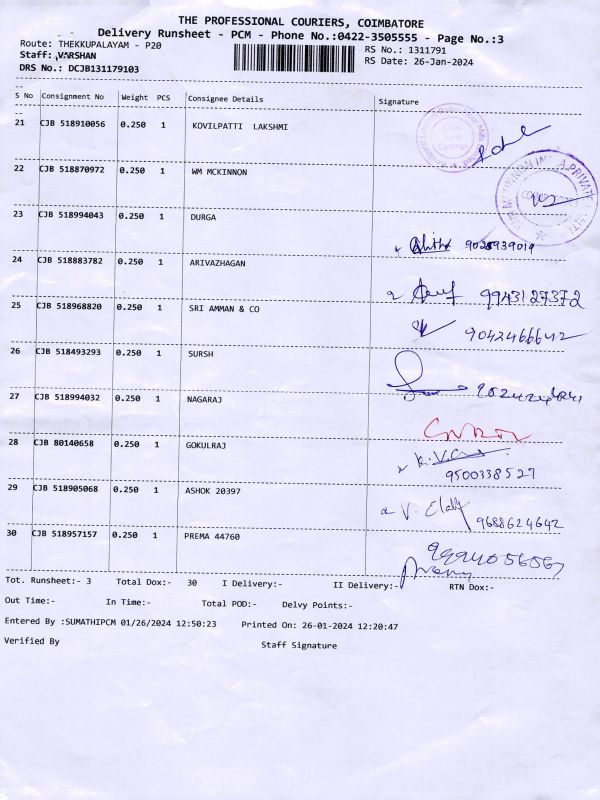 THE PROFESSIONAL COURIERS, COIMBATORE
Delivery Runsheet - PCM - Phone No.:0422-3505555 - Page No.:3
Route: THEKKUPALAYAM - P20
RS No.: 1311791
Staff: VARSHAN
RS Date: 26-Jan-2024
DRS No.: DCJB131179103
S No Consignment No Weight PCS Consignee Details Signature
21 CJB 518910056 0.250 1 KOVILPATTI LAKSHMI
22 CJB 518870972 0.250 1 WM MCKINNON
23 CJB 518994043 0.250 1 DURGA
24 CJB 518883782 0.250 1 ARIVAZHAGAN
9943127372
25 CJB 518968820 0.250 1 SRI AMMAN & CO
9042466642
26 CJB 518493293 0.250 1 SURSH
27 CJB 518994032 0.250 1 NAGARAJ
28 CJB 80140658 0.250 1 GOKULRAJ
9500338527
29 CJB 518905068 0.250 1 ASHOK 20397
9688624642
30 CJB 518957157 0.250 1 PREMA 44760
Tot. Runsheet:- 3 Total Dox:- 30 I Delivery:- II Delivery:- RTN Dox:-
Out Time:- In Time:- Total POD:- Delvy Points:-
Entered By :SUMATHIPCM 01/26/2024 12:50:23 Printed On: 26-01-2024 12:20:47
Verified By Staff Signature